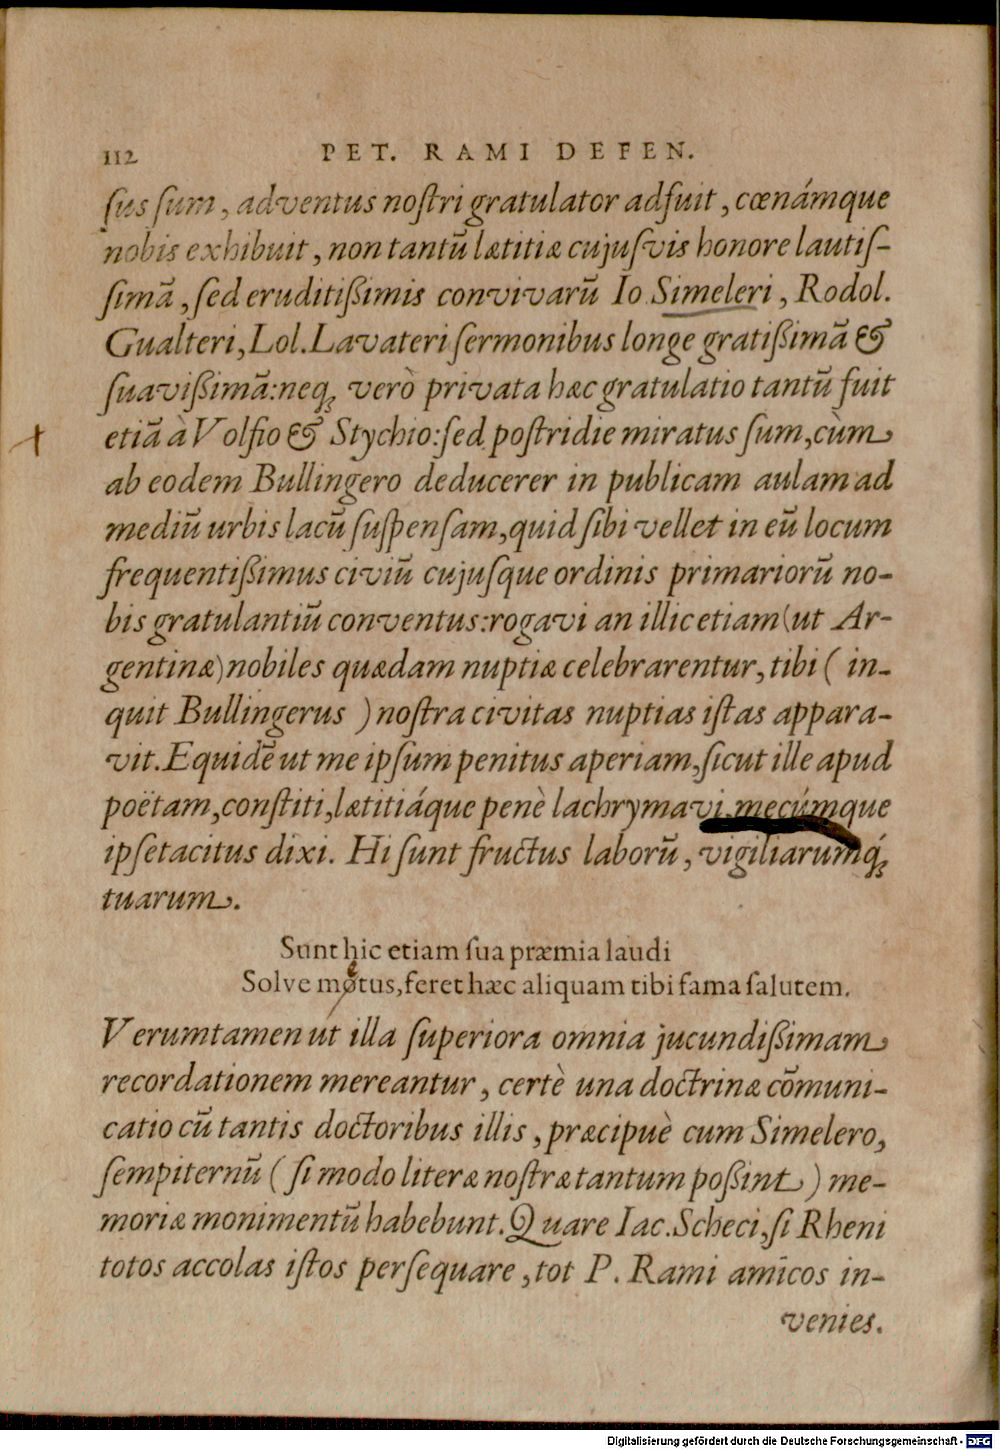 112 PET. RAMI DEFEN.
ſus ſum, adventus noſtri gratulator adfuit, cœnámque
nobis exhibuit, non tantū lætitiæ cujuſvis honore lautiſ-
ſimā, ſed eruditißimis convivarū Io. Simeleri, Rodol.
Gualteri, Lol. Lavateri ſermonibus longe gratißimā &
ſuavißimā: neq; verò privata hæc gratulatio tantū fuit
etiā à Volfio & Stychio: ſed poſtridie miratus ſum, cùm
ab eodem Bullingero deducerer in publicam aulam ad
mediū urbis lacū ſuſpenſam, quid ſibi vellet in eū locum
frequentißimus civiū cujuſque ordinis primariorū no-
bis gratulantiū conventus: rogavi an illic etiam (ut Ar-
gentinæ) nobiles quædam nuptiæ celebrarentur, tibi ( in-
quit Bullingerus ) noſtra civitas nuptias iſtas appara-
vit. Equidē ut me ipſum penitus aperiam, ſicut ille apud
poëtam, conſtiti, lætitiáque penè lachrymavi, mecúmque
ipſe tacitus dixi. Hi ſunt fructus laborū, vigiliarumq́;
tuarum.
Sunt hic etiam ſua præmia laudi
Solve motus, feret hæc aliquam tibi fama ſalutem.
Verumtamen ut illa ſuperiora omnia jucundißimam
recordationem mereantur, certè una doctrinæ cōmuni-
catio cū tantis doctoribus illis, præcipuè cum Simelero,
ſempiternū ( ſi modo literæ noſtræ tantum poßint ) me-
moriæ monimentū habebunt. Quare Iac. Scheci, ſi Rheni
totos accolas iſtos perſequare, tot P. Rami amicos in-
venies.
Digitalisierung gefördert durch die Deutsche Forschungsgemeinschaft - DFG